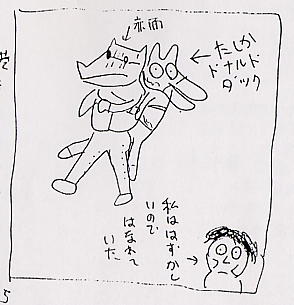 たしか
ドナルド
ダック
私ははずかし
いので
はなれて
いた。
5